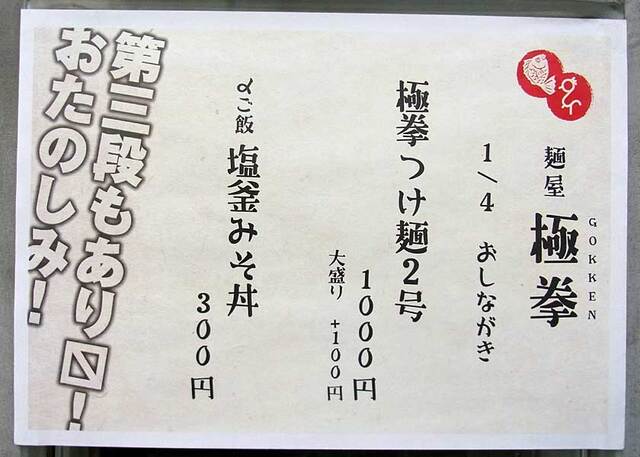 麺屋 極拳
GOKKEN
1/4 おしながき
極拳つけ麺2号
1000円
大盛り +100円
〆ご飯 塩釜みそ丼
300円
第三段もあり〼!
おたのしみ!